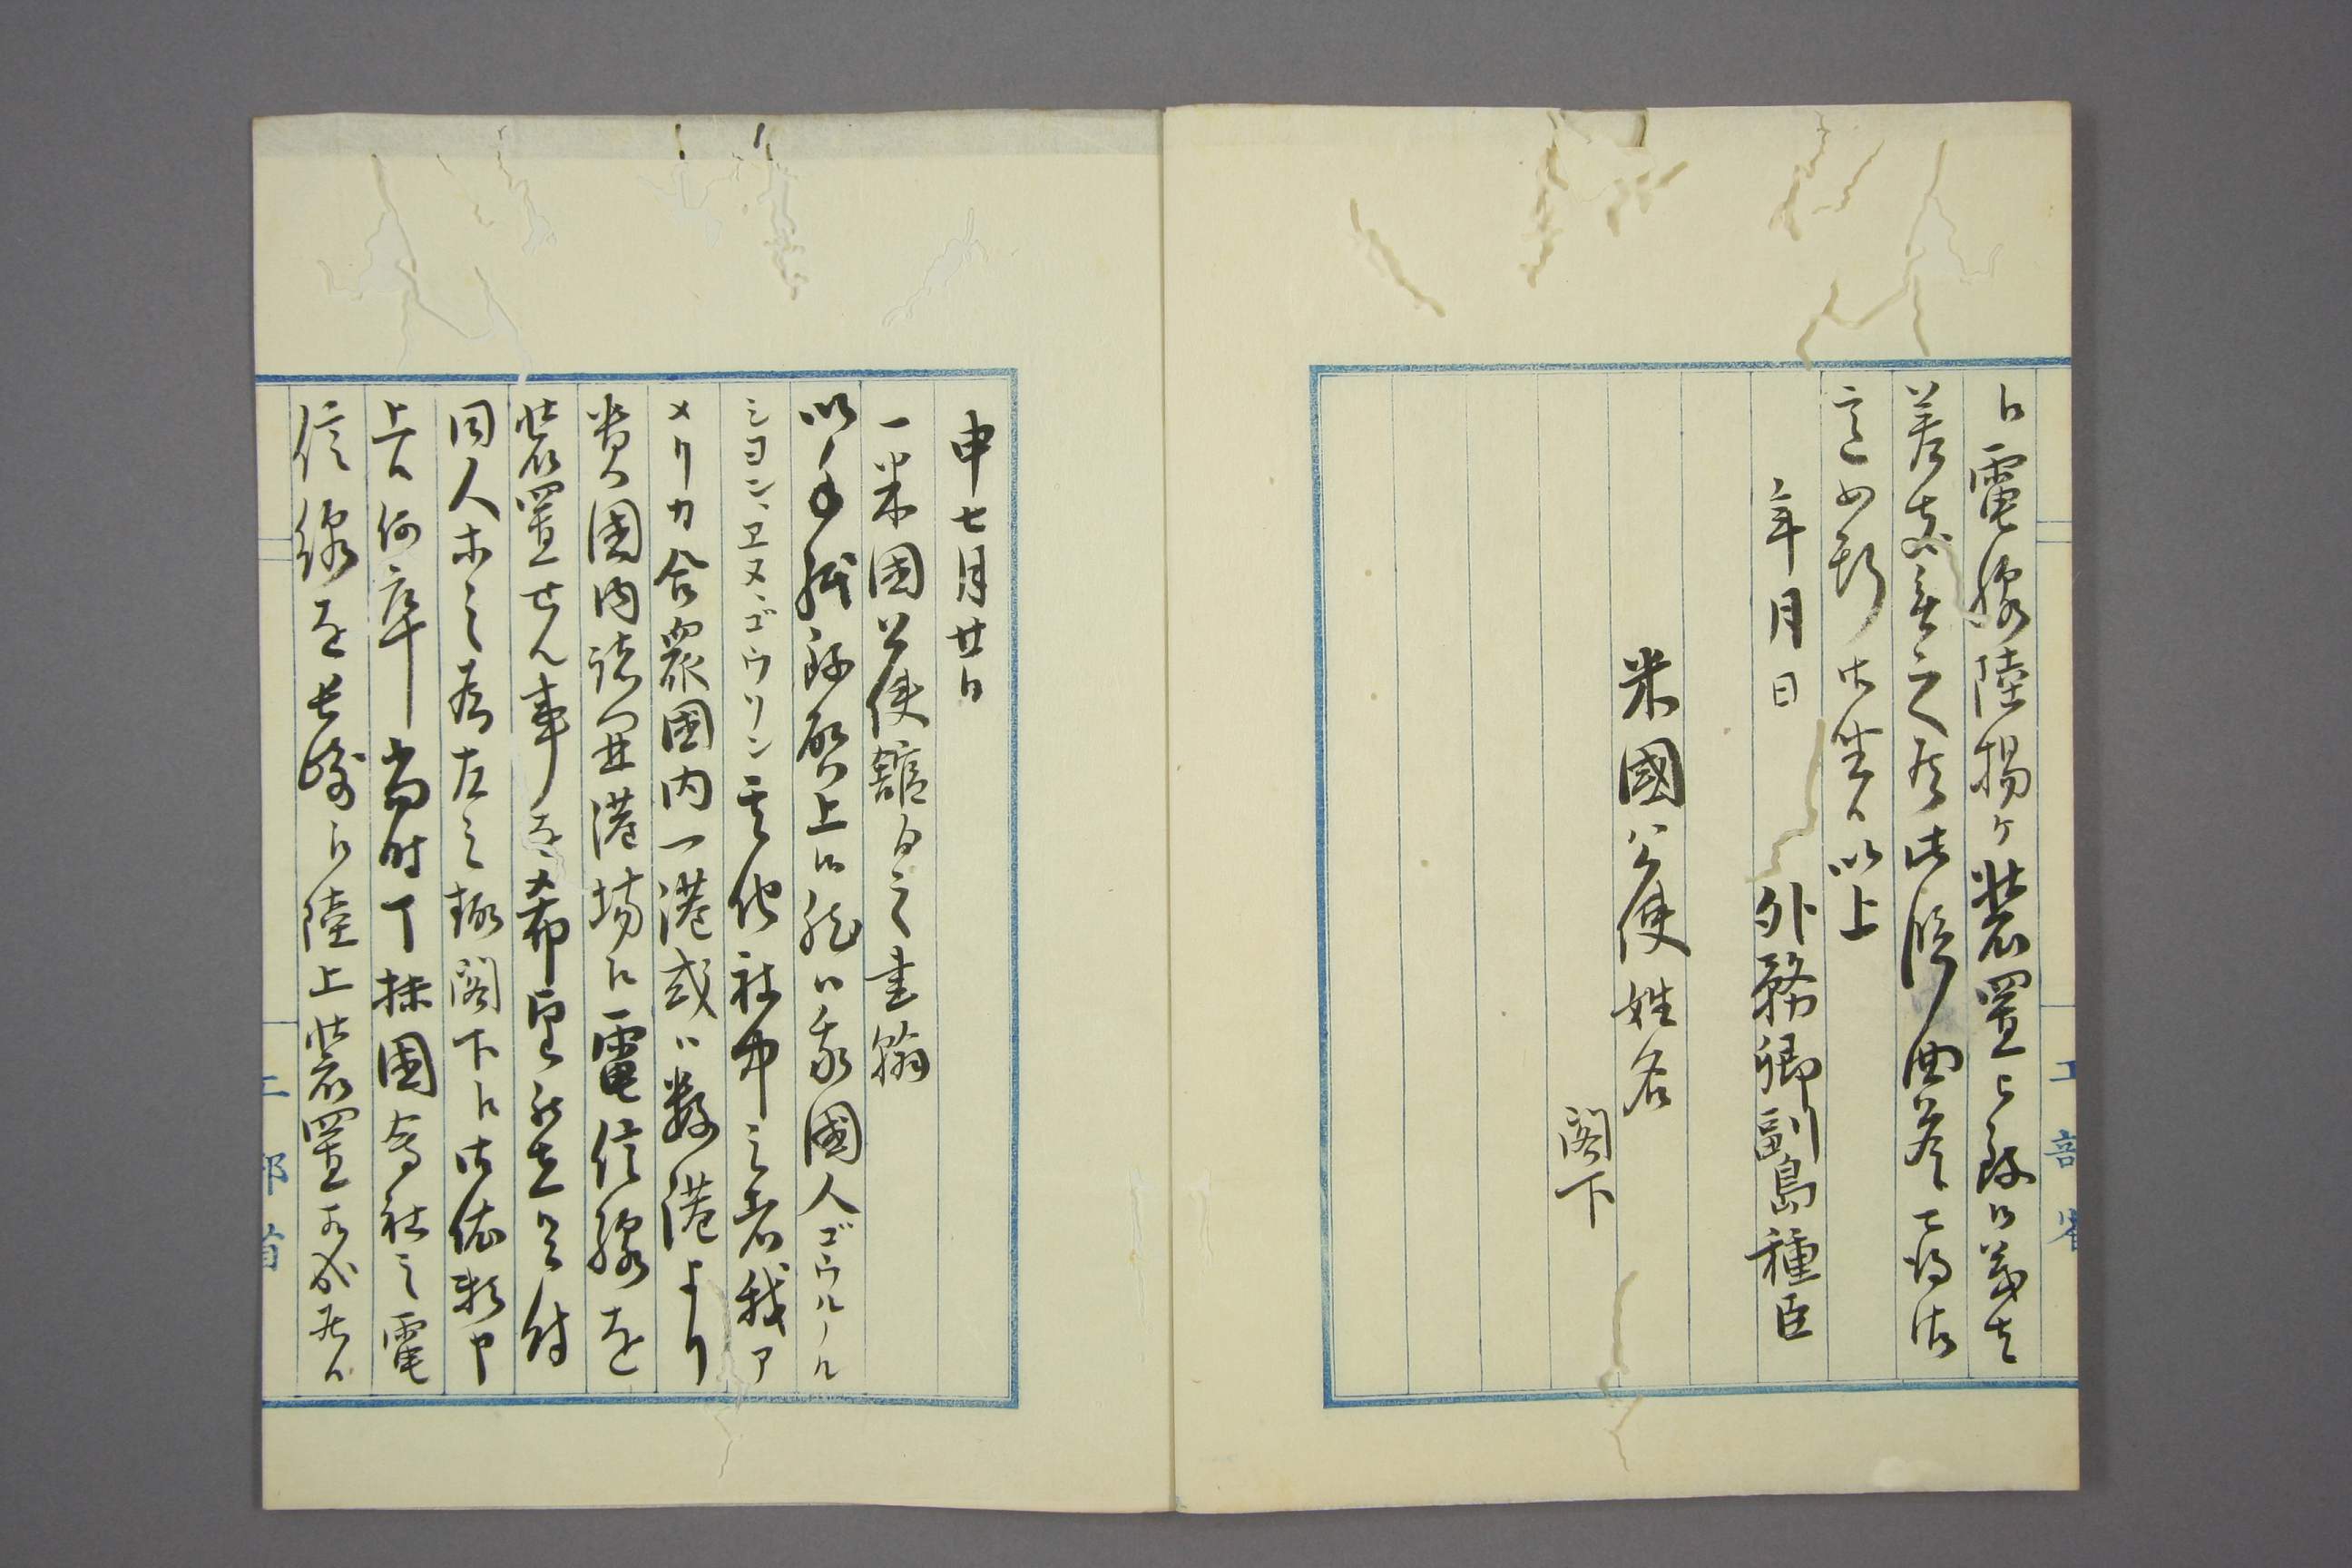 ニ電線陸揚ケ装置之致候義者
差支無之候此段回答可得御
意如斯御坐候以上
年月日
外務卿副島種臣
米國公使姓名
閣下
工部省
申七月廿日
一米国公使舘ゟ之書翰
以手紙致啓上候然ハ我國人ゴウルノール
シヨン、ヱヌ、ゴウリン其他社中之者我ア
メリカ合衆國内一港或ハ数港より
貴国内諸開港場ニ電信線を
装置せん事を希望
同人等之為左之趣閣下ニ御依頼申
上候何卒當時丁抹国商社之電
信線を長崎ニ陸上装置
工部省